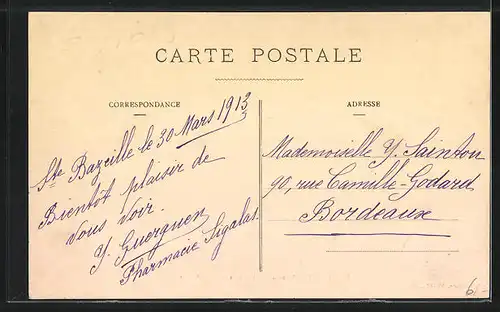 CARTE POSTALE
CORRESPONDANCE
ADRESSE
Ste Bazeille le 30 Mars 1913
Bientôt plaisir de
vous voir.
Y. Guerguen
Pharmacie Sigalas.
Mademoiselle Y. Sainton
90, rue Camille-Godard
Bordeaux
6.-